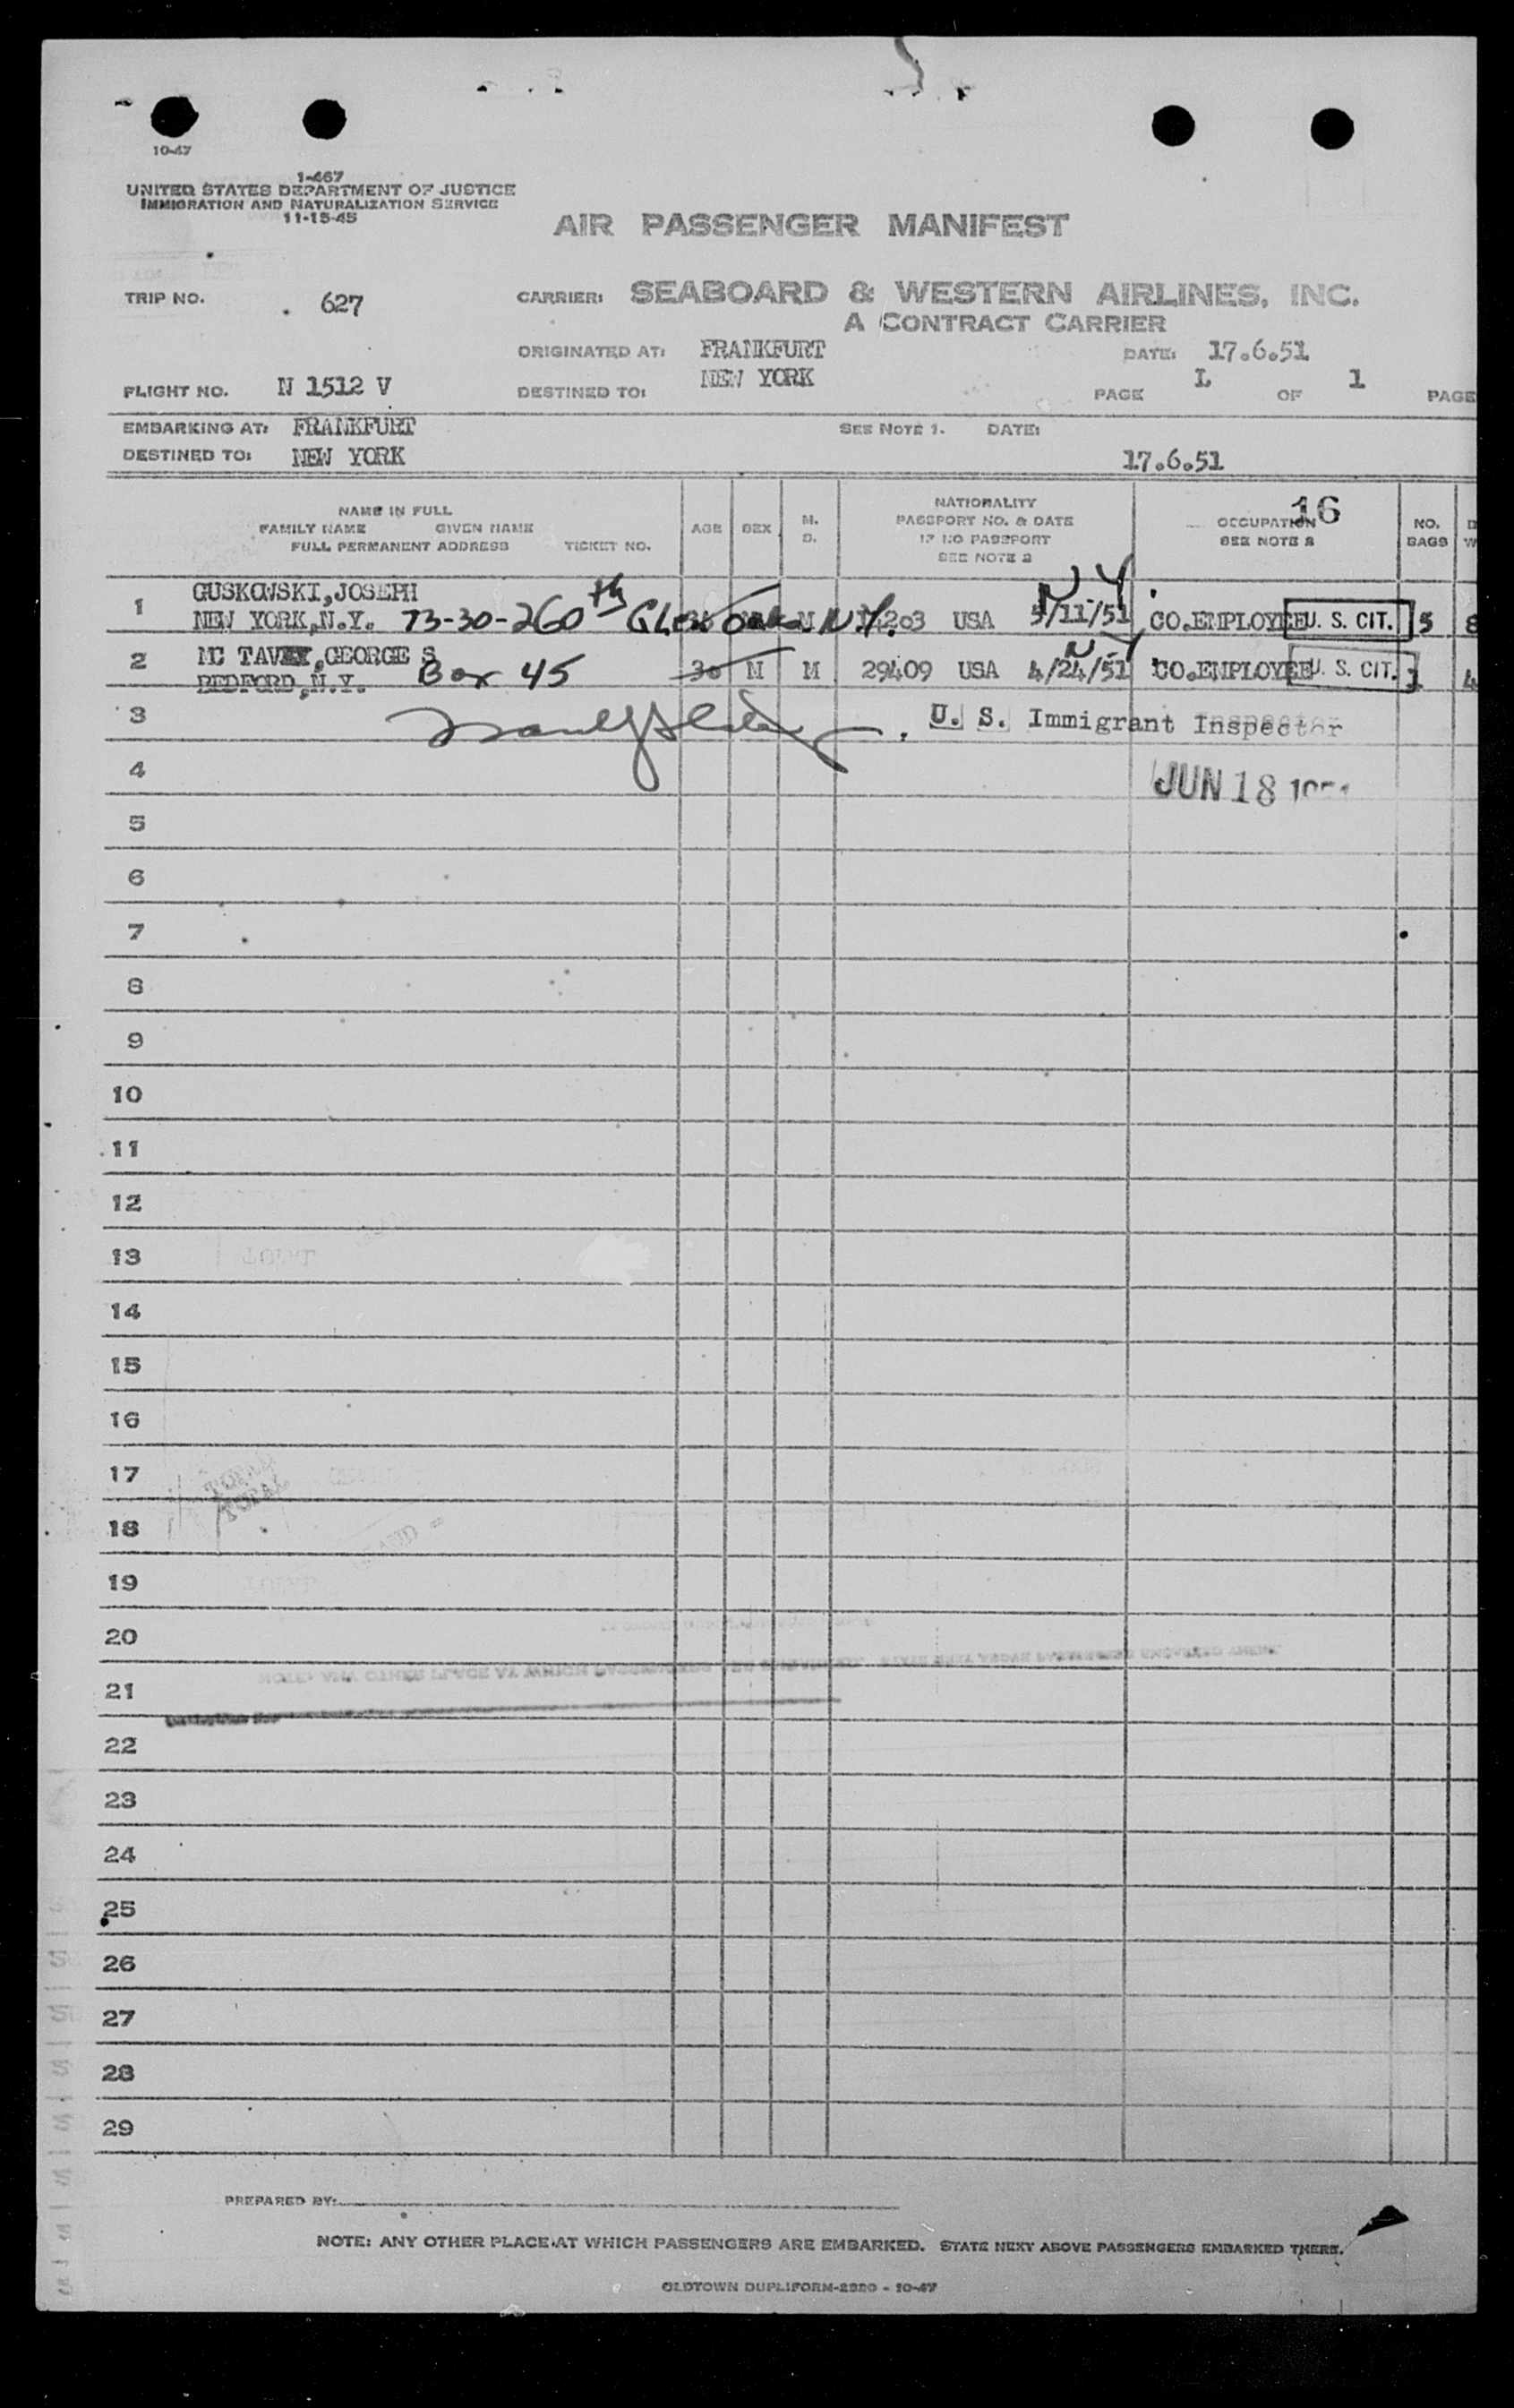 10-47
1-467
UNITED STATES DEPARTMENT OF JUSTICE
IMMIGRATION AND NATURALIZATION SERVICE
11-15-45
AIR PASSENGER MANIFEST
TRIP NO. 627
CARRIER: SEABOARD & WESTERN AIRLINES, INC.
A CONTRACT CARRIER
ORIGINATED AT: FRANKFURT DATE: 17.6.51
FLIGHT NO. N 1512 V DESTINED TO: NEW YORK PAGE OF 1 PAGE
EMBARKING AT: FRANKFURT SEE NOTE 1. DATE:
DESTINED TO: NEW YORK 17.6.51
16
NAME IN FULL
FAMILY NAME GIVEN NAME
FULL PERMANENT ADDRESS TICKET NO.
AGE SEX
M.
D.
NATIONALITY
PASSPORT NO. & DATE
IF NO PASSPORT
SEE NOTE 2
OCCUPATION
SEE NOTE 2
NO.
BAGS
N.Y.
1 GUSKOWSKI, JOSEPH
NEW YORK, N.Y. 73-30-260th Glen Oaks N.Y. USA 5/11/51 CO.EMPLOYEE U. S. CIT. 5 8
N.Y.
2 MC TAVEY, GEORGE S
BEDFORD, N.Y. Box 45 30 M M 29409 USA 4/24/51 CO.EMPLOYEE U. S. CIT. 4
3 U. S. Immigrant Inspector
4 JUN 18
5
6
7
8
9
10
11
12
13
14
15
16
17
18
19
20
21
22
23
24
25
26
27
28
29
PREPARED BY:
NOTE: ANY OTHER PLACE AT WHICH PASSENGERS ARE EMBARKED. STATE NEXT ABOVE PASSENGERS EMBARKED THERE.
OLDTOWN DUPLIFORM-2820 - 10-47